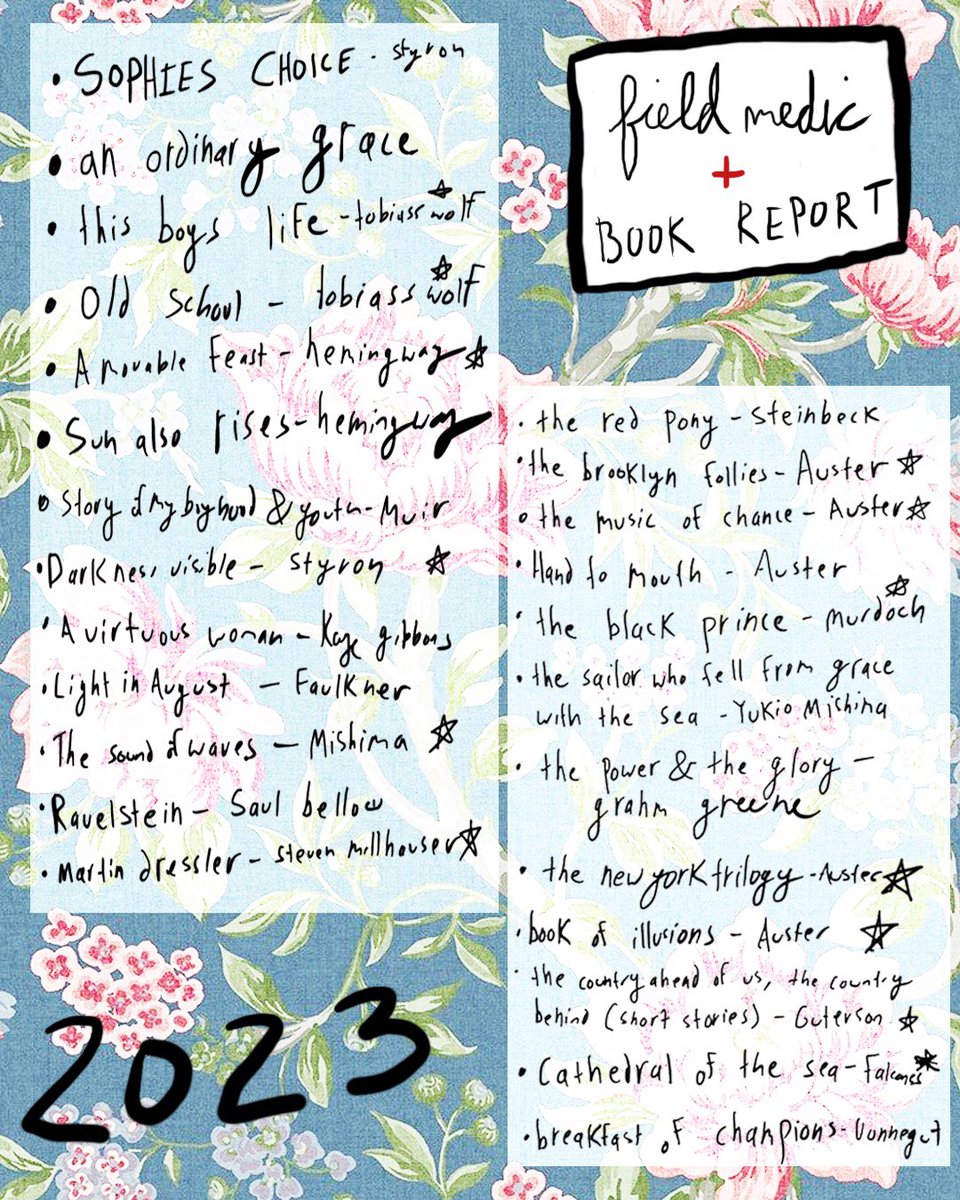 • SOPHIES CHOICE - styron
• an ordinary grace
• this boys life - tobiass wolf ☆
• Old School - tobiass wolf ☆
• A movable Feast - hemingway ☆
• Sun also rises - hemingway
• Story of my boyhood & youth - Muir
• Darkness visible - Styron ☆
• A virtuous woman - Kaye gibbons
• Light in August - Faulkner
• The sound of waves - Mishima ☆
• Ravelstein - Saul bellow
• Martin dressler - Steven millhouser ☆
2023
field medic
+
BOOK REPORT
• the red pony - Steinbeck
• the brooklyn follies - Auster ☆
• the music of chance - Auster ☆
• Hand to mouth - Auster
• the black prince - murdoch ☆
• the sailor who fell from grace
with the sea - Yukio Mishima
• the power & the glory -
grahm greene
• the new york trilogy - Auster ☆
• book of illusions - Auster ☆
• the country ahead of us, the country
behind (short stories) - Guterson ☆
• Cathedral of the sea - Falcones ☆
• breakfast of champions - Vonnegut